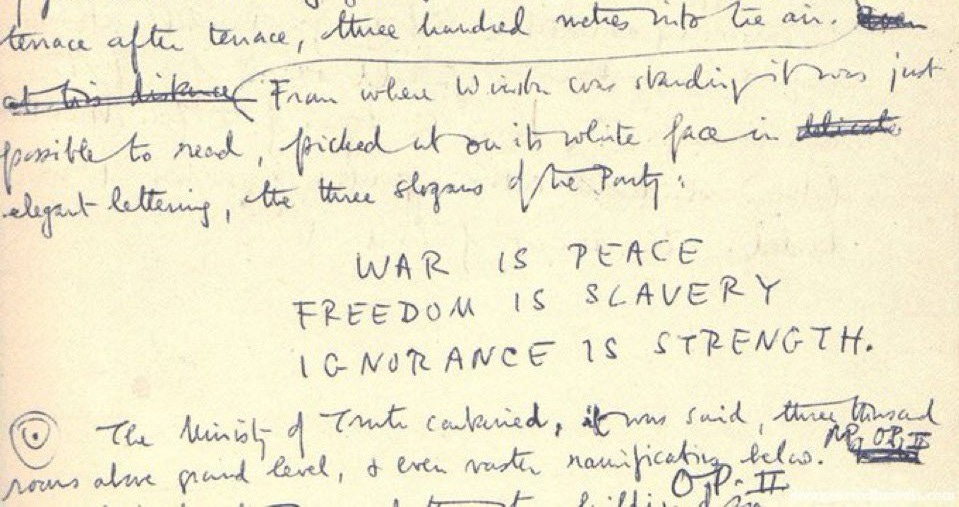 terrace after terrace, three hundred metres into the air. Even
at this distance From where Winston was standing it was just
possible to read, picked out on its white face in delicate
elegant lettering, the three slogans of the Party:
WAR IS PEACE
FREEDOM IS SLAVERY
IGNORANCE IS STRENGTH.
The Ministry of Truth contained, it was said, three thousand
rooms above ground level, & even vaster ramifications below.
O.P. II